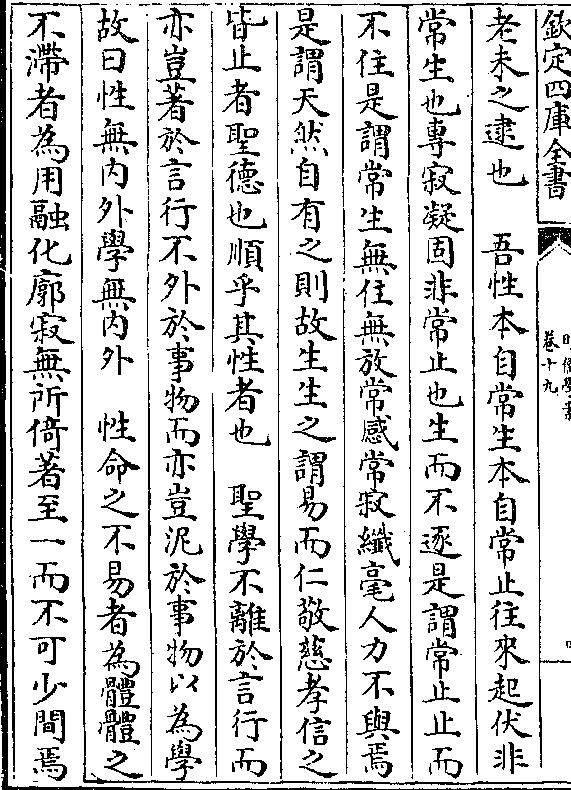 欽定四庫全書
卷十九
老未之逮也　　吾性本自常生本自常止往來起伏非
常生也專寂凝固非常止也生而不逐是謂常止止而
不住是謂常生無住無放常感常寂纖毫人力不與焉
是謂天然自有之則故生生之謂易而仁敬慈孝信之
皆止者聖德也順乎其性者也　　聖學不離於言行而
亦豈著於言行不外於事物而亦豈泥於事物以為學
故曰性無內外學無內外　　性命之不易者為體體之
不滯者為用融化廓寂無所倚著至一而不可少間焉